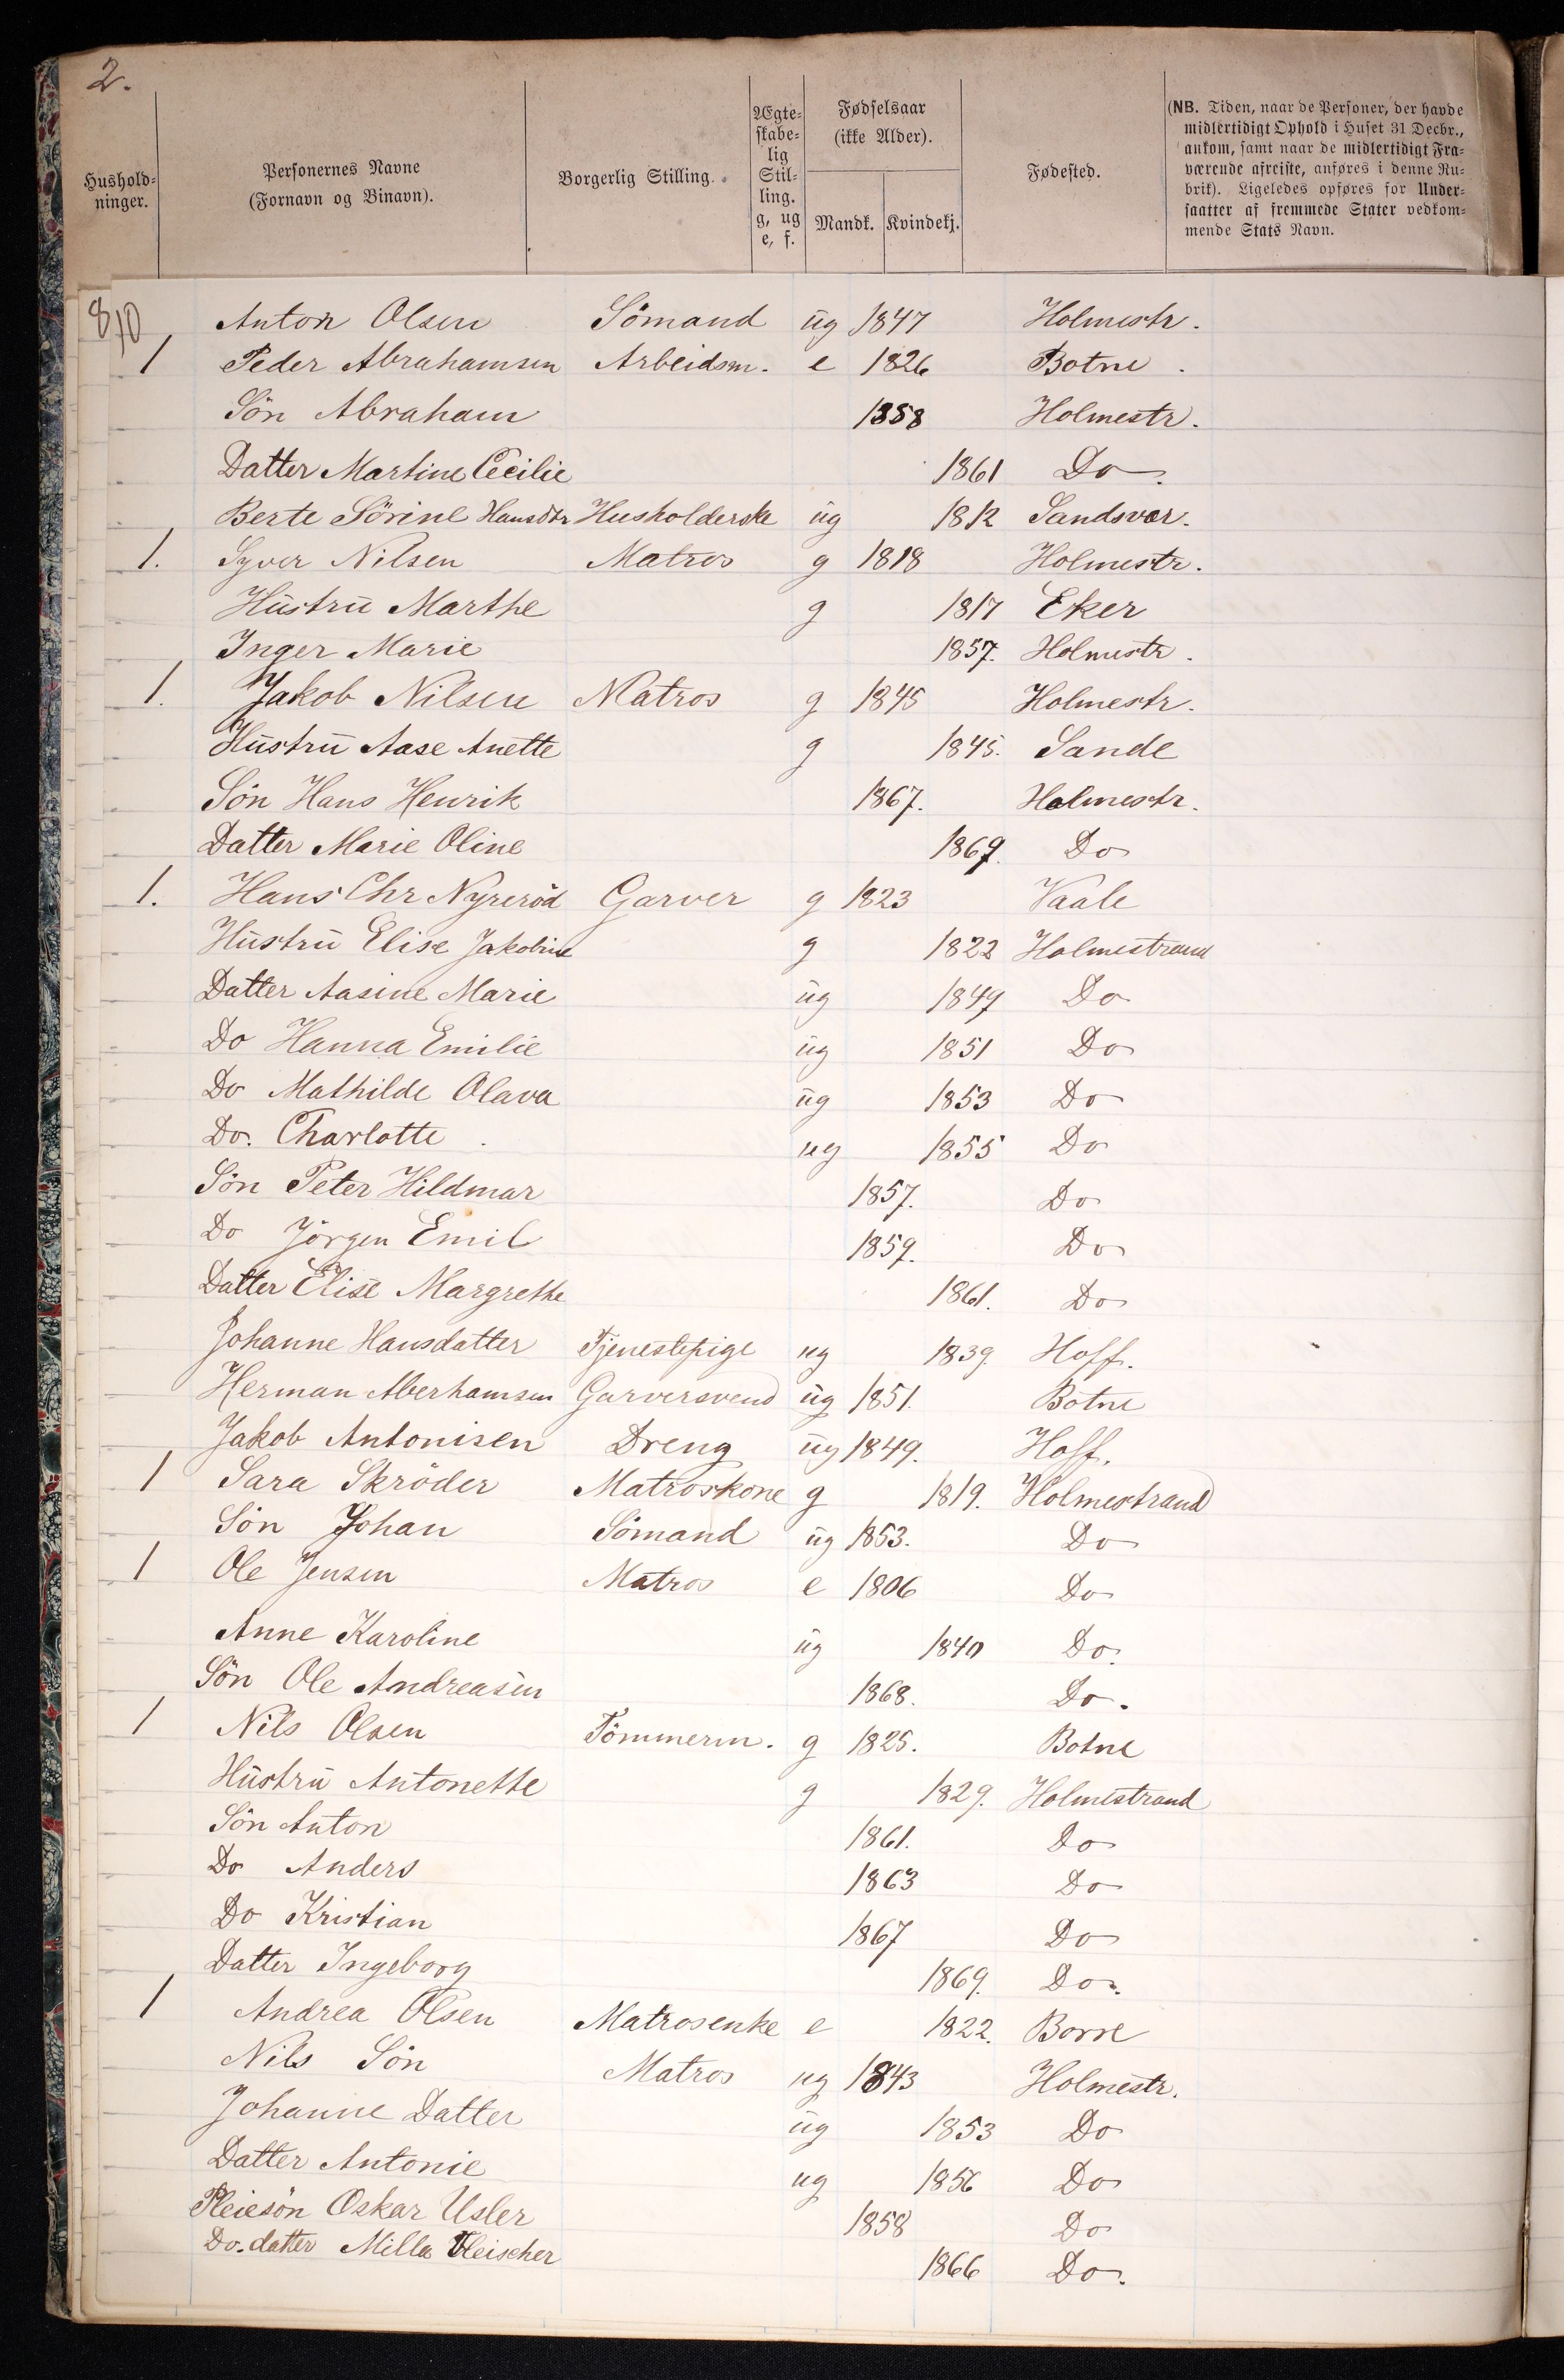 2.
Hushold-
ninger.
Personernes Navne
(Fornavn og Binavn).
Borgerlig Stilling.
Ægte-
skabe-
lig
Stil-
ling.
g, ug
e, f.
Fødselsaar
(ikke Alder).
Mandk. Kvindekj.
Fødested.
(NB. Tiden, naar de Personer, der havde
midlertidigt Ophold i Huset 31 Decbr.,
ankom, samt naar de midlertidigt Fra-
værende afreiste, anføres i denne Ru-
brik). Ligeledes opføres for Under-
saatter af fremmede Stater vedkom-
mende Stats Navn.
8/10 Anton Olsen Sömand ug 1847 Holmestr.
1 Peder Abrahamsen Arbeidsm. e 1826 Botne.
Sön Abraham 1858 Holmestr.
Datter Martine Cecilie 1861 Do.
Berte Sörine Hansdtr Husholderske ug 1812 Sandsvær.
1. Syver Nilsen Matros g 1818 Holmestr.
Hustru Marthe g 1817 Eker
Inger Marie 1857. Holmestr.
1. Jakob Nilsen Matros g 1845 Holmestr.
Hustru Aase Anette g 1845. Sande
Sön Hans Henrik 1867. Holmestr.
Datter Marie Oline 1869. Do
1. Hans Chr Nyreröd Garver g 1823 Vaale
Hustru Elise Jakobine g 1822 Holmestrand
Datter Aasine Marie ug 1849 Do
Do Hanna Emilie ug 1851 Do
Do Mathilde Olava ug 1853 Do
Do. Charlotte. ug 1855 Do
Sön Peter Hildmar 1857. Do
Do Jörgen Emil 1859. Do
Datter Elise Margrethe 1861. Do
Johanne Hansdatter Tjenestepige ug 1839. Hoff.
Herman Aberhamsen Garversvend ug 1851. Botne
Jakob Antonisen Dreng ug 1849. Hoff.
1 Sara Skröder Matroskone g 1819. Holmestrand
Sön Johan Sömand ug 1853. Do
1 Ole Jensen Matros e 1806 Do
Anne Karoline ug 1840 Do.
Sön Ole Andreasen 1868. Do.
1 Nils Olsen Tömmerm. g 1825. Botne
Hustru Antonette g 1829. Holmestrand
Sön Anton 1861. Do
Do Anders 1863 Do
Do Kristian 1867 Do
Datter Ingeborg 1869. Do.
1 Andrea Olsen Matrosenke e 1822. Borre
Nils Sön Matros ug 1843 Holmestr.
Johanne Datter ug 1853 Do
Datter Antonie ug 1856 Do
Pleiesön Oskar Usler 1858 Do
Do. datter Milla Fleischer 1866 Do.